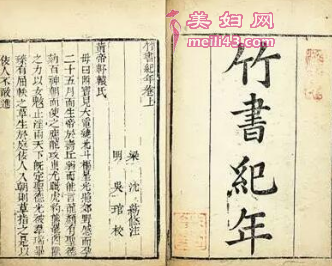 美妇网
meili43.com
竹書紀年
竹書紀年卷上
梁 沈約修注
明 吳琯校
黃帝軒轅氏
母曰附寶見大電繞北斗樞星光照郊野感而孕
二十五月而生帝於壽丘弱而能言龍顏有聖德
劾百神朝而使之應龍攻蚩尤戰虎豹熊羆四獸
之力以女魃止淫雨天下既定聖德光被羣瑞畢
臻有屈軼之草生於庭佞人入朝則草指之是以
佞人不敢進